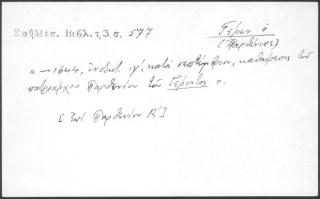 Σάθας Μεσ. Βιβλ. τ. 3 σ. 577
Γέρων ὁ
(Παρθένιος)
« — 1644, ἰνδικτ. ιγ', κατὰ σεπτέμβριον, καθαίρεσις τοῦ
πατριάρχου Παρθενίου τοῦ Γέροντος ».
[Ἐπὶ Παρθενίου Β']